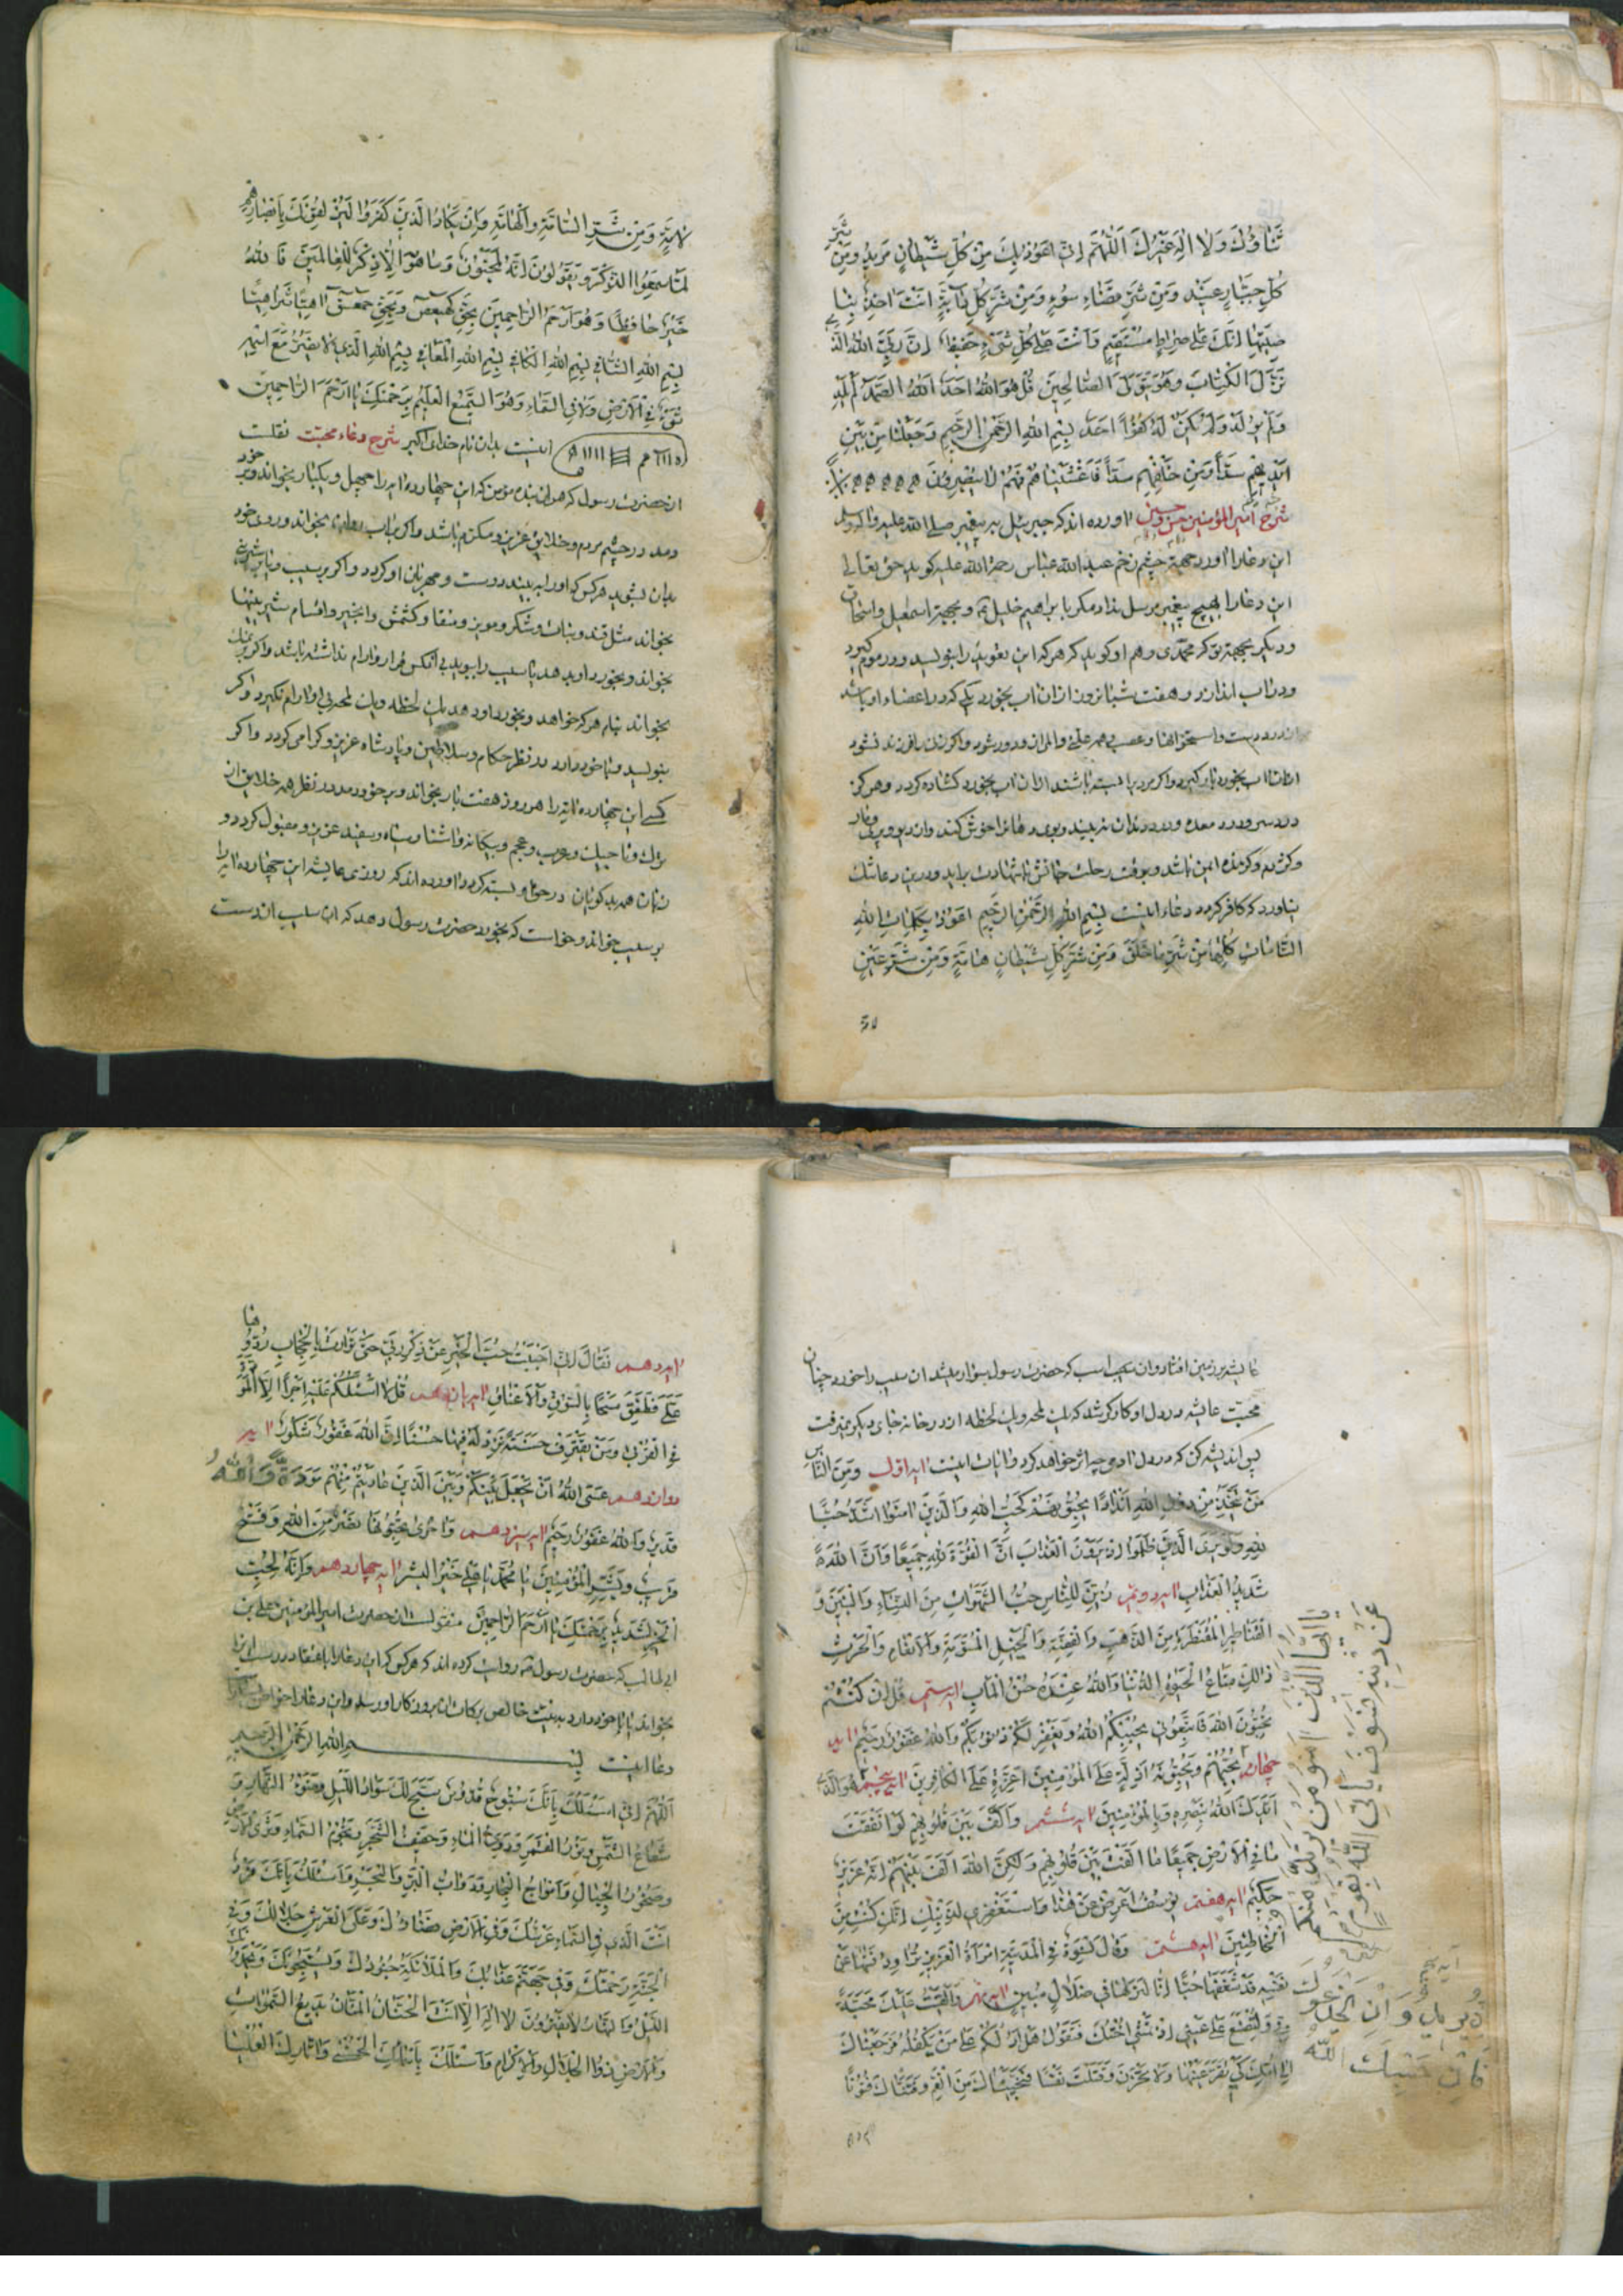 ثَنَاؤُكَ وَلَا اِلٰهَ غَيْرُكَ اَللّٰهُمَّ اِنِّى اَعُوْذُ بِكَ مِنْ كُلِّ شَيْطَانٍ مَرِيْدٍ وَمِنْ شَرِّ
كُلِّ جَبَّارٍ عَنِيْدٍ وَمِنْ شَرِّ قَضَاءِ سُوْءٍ وَمِنْ شَرِّ كُلِّ دَآبَّةٍ اَنْتَ اٰخِذٌ بِنَا
صِيَتِهَا اِنَّكَ عَلٰى صِرَاطٍ مُسْتَقِيْمٍ وَاَنْتَ عَلٰى كُلِّ شَىْءٍ حَفِيْظٌ اِنَّ وَلِيِّىَ اللّٰهُ الَّذِى
نَزَّلَ الْكِتَابَ وَهُوَ يَتَوَلَّى الصَّالِحِيْنَ قُلْ هُوَ اللّٰهُ اَحَدٌ اَللّٰهُ الصَّمَدُ لَمْ يَلِدْ
وَلَمْ يُوْلَدْ وَلَمْ يَكُنْ لَهُ كُفُوًا اَحَدٌ بِسْمِ اللّٰهِ الرَّحْمٰنِ الرَّحِيْمِ وَجَعَلْنَا مِنْ بَيْنِ
اَيْدِيْهِمْ سَدًّا وَمِنْ خَلْفِهِمْ سَدًّا فَاَغْشَيْنَاهُمْ فَهُمْ لَا يُبْصِرُوْنَ
شرح امير المؤمنين حسن وحسين اورده اند كه جبرئيل بر پيغمبر صلى الله عليه واله وسلم
اين دعا را اورد جهة چشم زخم عبد الله عباس رحمة الله عليه كويد حق تعالى
اين دعا را بهيچ پيغمبر مرسل نداد مكر با براهيم خليل و بجهة اسمعيل واسحاق
وديكر بجهة تو كه محمدى وهم او كويد كه هر كه اين تعويذ را بنويسد ودر موم كيرد
ودر اب اندازد و هفت شبانروز ازان اب بخورد يكى كه در اعضاء او باشد
از درد دست واستخوانها و عصب همه علتى والم ازو دور شود واكر زن را فرزند نشود
ازان اب بخورد بار كيرد واكر مرد را بسته باشند ازان اب بخورد كشاده كردد وهر كز
درد سر ودرد معده ودرد دندان نه بيند وبوى دهان را خوش كند واز ديو وپرى ومار
وكژدم وكزنده ايمن باشد و بوقت رحلت جانش با شهادت برايد ودرين دعا شك
نياورد كه كافر كردد دعاء اينست بِسْمِ اللّٰهِ الرَّحْمٰنِ الرَّحِيْمِ اَعُوْذُ بِكَلِمَاتِ اللّٰهِ
التَّامَّاتِ كُلِّهَا مِنْ شَرِّ مَا خَلَقَ وَمِنْ شَرِّ كُلِّ شَيْطَانٍ هَامَّةٍ وَمِنْ شَرِّ عَيْنٍ
لَامَّةٍ وَمِنْ شَرِّ السَّامَّةِ وَالْهَامَّةِ وَاِنْ يَكَادُ الَّذِيْنَ كَفَرُوْا لَيُزْلِقُوْنَكَ بِاَبْصَارِهِمْ
لَمَّا سَمِعُوا الذِّكْرَ وَيَقُوْلُوْنَ اِنَّهُ لَمَجْنُوْنٌ وَمَا هُوَ اِلَّا ذِكْرٌ لِلْعَالَمِيْنَ فَاللّٰهُ
خَيْرٌ حَافِظًا وَهُوَ اَرْحَمُ الرَّاحِمِيْنَ بِحَقِّ كٓهٰيٰعٓصٓ وَبِحَقِّ حٰمٓعٓسٓقٓ اهيا شراهيا
بِسْمِ اللّٰهِ الشَّافِى بِسْمِ اللّٰهِ الْكَافِى بِسْمِ اللّٰهِ الْمُعَافِى بِسْمِ اللّٰهِ الَّذِى لَا يَضُرُّ مَعَ اسْمِهِ
شَىْءٌ فِى الْاَرْضِ وَلَا فِى السَّمَاءِ وَهُوَ السَّمِيْعُ الْعَلِيْمُ بِرَحْمَتِكَ يَا اَرْحَمَ الرَّاحِمِيْنَ
اينست بدان نام خداى اكبر شرح دعاء محبت نقلست
از حضرت رسول كه هر ان بنده مؤمن كه اين چهارده ايه را چهل ويكبار بخواند وبر خود
دمد در چشم مردم وخلايق عزيز ومكرم باشد واكر باب باران بخواند وروى خود
بدان بشويد هر كس كه او را به بيند دوست و مهربان او كردد واكر بر سيب ويا شيرينى
بخواند مثل قند ونبات وشكر ومويز ومنقا وكشمش وانجير واقسام شيرينيها
بخواند وبخورد او بدهد يا سيب را ببويد بى انكس قرار وارام نداشته باشد واكر
بخواند بنام هر كه خواهد وبخورد او دهد يك لحظه ويك لمحه بى او ارام نكيرد واكر
بنويسد وبا خود دارد در نظر حكام وسلاطين وپادشاه عزيز وكرامى كردد واكر
كسى اين چهارده ايه را هر روز هفت بار بخواند وبر خود دمد در نظر همه خلايق از
ترك وتاجيك وعرب وعجم وبيكانه واشنا وسياه وسفيد عزيز ومقبول كردد و
زبان همه بدكويان در حق او بسته كردد اورده اند كه روزى عايشه اين چهارده ايه را
بر سيب خواند وخواست كه بخورد حضرت رسول دهد كه ان سيب از دست
عايشه بر زمين افتاد وان سيب اسب كه حضرت رسول سوار ميشد ان سيب را خورد چنان
محبت عايشه در دل او كاركر شد كه يك لمحه ويك لحظه از در خانه جاى ديكر نميرفت
پس انديشه كن كه در دل ادمى چه اثر خواهد كرد وايات اينست ايه اول وَمِنَ النَّاسِ
مَنْ يَتَّخِذُ مِنْ دُوْنِ اللّٰهِ اَنْدَادًا يُحِبُّوْنَهُمْ كَحُبِّ اللّٰهِ وَالَّذِيْنَ اٰمَنُوْا اَشَدُّ حُبًّا
لِلّٰهِ وَلَوْ يَرَى الَّذِيْنَ ظَلَمُوْا اِذْ يَرَوْنَ الْعَذَابَ اَنَّ الْقُوَّةَ لِلّٰهِ جَمِيْعًا وَاَنَّ اللّٰهَ
شَدِيْدُ الْعَذَابِ ايه دويم زُيِّنَ لِلنَّاسِ حُبُّ الشَّهَوَاتِ مِنَ النِّسَاءِ وَالْبَنِيْنَ وَ
الْقَنَاطِيْرِ الْمُقَنْطَرَةِ مِنَ الذَّهَبِ وَالْفِضَّةِ وَالْخَيْلِ الْمُسَوَّمَةِ وَالْاَنْعَامِ وَالْحَرْثِ
ذٰلِكَ مَتَاعُ الْحَيٰوةِ الدُّنْيَا وَاللّٰهُ عِنْدَهُ حُسْنُ الْمَاٰبِ ايه سيم قُلْ اِنْ كُنْتُمْ
تُحِبُّوْنَ اللّٰهَ فَاتَّبِعُوْنِى يُحْبِبْكُمُ اللّٰهُ وَيَغْفِرْ لَكُمْ ذُنُوْبَكُمْ وَاللّٰهُ غَفُوْرٌ رَحِيْمٌ ايه
چهارم يُحِبُّهُمْ وَيُحِبُّوْنَهُ اَذِلَّةٍ عَلَى الْمُؤْمِنِيْنَ اَعِزَّةٍ عَلَى الْكَافِرِيْنَ ايه پنجم هُوَ الَّذِى
اَيَّدَكَ اللّٰهُ بِنَصْرِهِ وَبِالْمُؤْمِنِيْنَ ايه ششم وَاَلَّفَ بَيْنَ قُلُوْبِهِمْ لَوْ اَنْفَقْتَ
مَا فِى الْاَرْضِ جَمِيْعًا مَا اَلَّفْتَ بَيْنَ قُلُوْبِهِمْ وَلٰكِنَّ اللّٰهَ اَلَّفَ بَيْنَهُمْ اِنَّهُ عَزِيْزٌ
حَكِيْمٌ ايه هفتم يُوْسُفُ اَعْرِضْ عَنْ هٰذَا وَاسْتَغْفِرِى لِذَنْبِكِ اِنَّكِ كُنْتِ مِنَ
الْخَاطِئِيْنَ ايه هشتم وَقَالَ نِسْوَةٌ فِى الْمَدِيْنَةِ امْرَاَةُ الْعَزِيْزِ تُرَاوِدُ فَتٰهَا عَنْ
نَفْسِهِ قَدْ شَغَفَهَا حُبًّا اِنَّا لَنَرٰهَا فِى ضَلَالٍ مُبِيْنٍ ايه نهم وَاَلْقَيْتُ عَلَيْكَ مَحَبَّةً
مِنِّى وَلِتُصْنَعَ عَلٰى عَيْنِى اِذْ تَمْشِى اُخْتُكَ فَتَقُوْلُ هَلْ اَدُلُّكُمْ عَلٰى مَنْ يَكْفُلُهُ فَرَجَعْنَاكَ
اِلٰى اُمِّكَ كَىْ تَقَرَّ عَيْنُهَا وَلَا تَحْزَنَ وَقَتَلْتَ نَفْسًا فَنَجَّيْنَاكَ مِنَ الْغَمِّ وَفَتَنَّاكَ فُتُوْنًا
يَا اَيُّهَا الَّذِيْنَ اٰمَنُوْا مَنْ يَرْتَدَّ مِنْكُمْ
عَنْ دِيْنِهِ فَسَوْفَ يَاْتِى اللّٰهُ بِقَوْمٍ
فَاِنَّ حَسْبَكَ اللّٰهُ
ايه دهم فَقَالَ اِنِّى اَحْبَبْتُ حُبَّ الْخَيْرِ عَنْ ذِكْرِ رَبِّى حَتّٰى تَوَارَتْ بِالْحِجَابِ رُدُّوْهَا
عَلَىَّ فَطَفِقَ مَسْحًا بِالسُّوْقِ وَالْاَعْنَاقِ ايه يازدهم قُلْ لَا اَسْئَلُكُمْ عَلَيْهِ اَجْرًا اِلَّا الْمَوَدَّةَ
فِى الْقُرْبٰى وَمَنْ يَقْتَرِفْ حَسَنَةً نَزِدْ لَهُ فِيْهَا حُسْنًا اِنَّ اللّٰهَ غَفُوْرٌ شَكُوْرٌ ايه
دوازدهم عَسَى اللّٰهُ اَنْ يَجْعَلَ بَيْنَكُمْ وَبَيْنَ الَّذِيْنَ عَادَيْتُمْ مِنْهُمْ مَوَدَّةً وَاللّٰهُ
قَدِيْرٌ وَاللّٰهُ غَفُوْرٌ رَحِيْمٌ ايه سيزدهم وَاُخْرٰى تُحِبُّوْنَهَا نَصْرٌ مِنَ اللّٰهِ وَفَتْحٌ
قَرِيْبٌ وَبَشِّرِ الْمُؤْمِنِيْنَ يَا مُحَمَّدُ يَا عَلِىُّ خَيْرَ الْبَشَرِ ايه چهاردهم وَاِنَّهُ لِحُبِّ
الْخَيْرِ لَشَدِيْدٌ بِرَحْمَتِكَ يَا اَرْحَمَ الرَّاحِمِيْنَ منقولست از حضرت امير المؤمنين على بن
ابى طالب كه حضرت رسول روايت كرده اند كه هر كس كه اين دعا را باعتقاد درست
بخواند يا با خود دارد به نيت خالص بركات ان بروزكار او رسد واين دعا را خواص
دعا اينست بِسْمِ اللّٰهِ الرَّحْمٰنِ الرَّحِيْمِ
اَللّٰهُمَّ اِنِّى اَسْئَلُكَ بِاَنَّكَ سُبُّوْحٌ قُدُّوْسٌ يُسَبِّحُ لَكَ سَوَادُ اللَّيْلِ وَضَوْءُ النَّهَارِ وَ
شُعَاعُ الشَّمْسِ وَنُوْرُ الْقَمَرِ وَدَوِىُّ الْمَاءِ وَحَفِيْفُ الشَّجَرِ وَنُجُوْمُ السَّمَاءِ وَثَرَى الْاَرْضِ
وَصُخُوْرُ الْجِبَالِ وَاَمْوَاجُ الْبِحَارِ وَدَوَابُّ الْبَرِّ وَالْبَحْرِ وَاَسْئَلُكَ بِاَنَّكَ
اَنْتَ الَّذِى فِى السَّمَاءِ عَرْشُكَ وَفِى الْاَرْضِ قَضَاؤُكَ وَعَلَى الْعَرْشِ جَلَالُكَ وَفِى
الْجَنَّةِ رَحْمَتُكَ وَفِى جَهَنَّمَ عَذَابُكَ وَالْمَلَائِكَةُ جُنُوْدُكَ
اللَّيْلَ وَالنَّهَارَ لَا يَفْتُرُوْنَ لَا اِلٰهَ اِلَّا اَنْتَ الْحَنَّانُ الْمَنَّانُ بَدِيْعُ السَّمٰوَاتِ
وَالْاَرْضِ ذُو الْجَلَالِ وَالْاِكْرَامِ وَاَسْئَلُكَ بِاَسْمَائِكَ الْحُسْنٰى